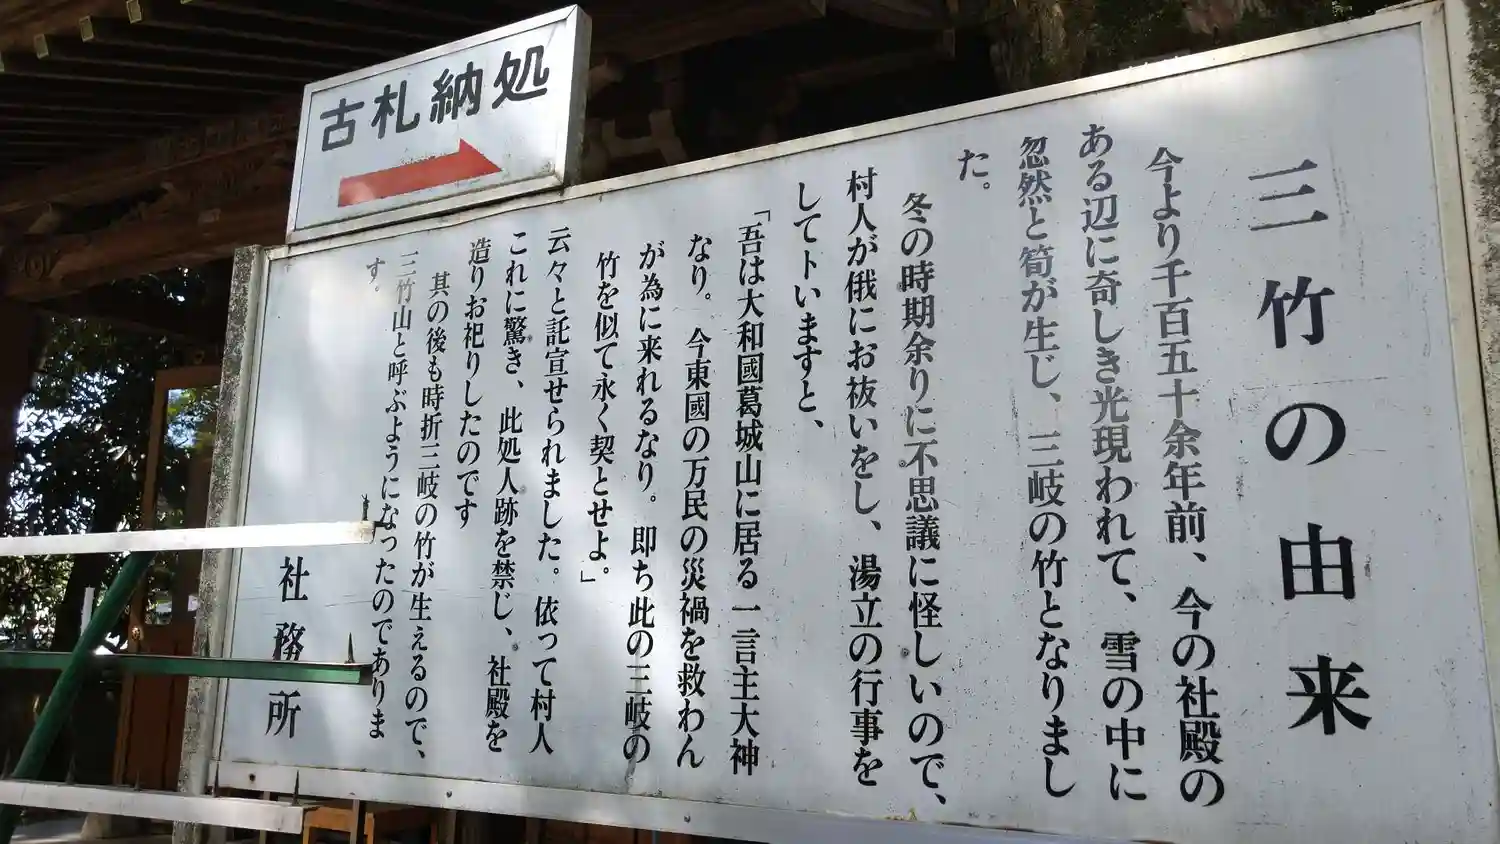 古札納処
三竹の由来
今より千百五十余年前、今の社殿の
ある辺に奇しき光現われて、雪の中に
忽然と筍が生じ、三岐の竹となりまし
た。
冬の時期余りに不思議に怪しいので、
村人が俄にお抜いをし、湯立の行事を
してトいますと、
「吾は大和國葛城山に居る一言主大神
なり。今東國の万民の災禍を救わん
が為に来れるなり。即ち此の三岐の
竹を似て永く契とせよ。」
云々と託宣せられました。依って村人
これに驚き、此処人跡を禁じ、社殿を
造りお祀りしたのです
其の後も時折三岐の竹が生えるので、
三竹山と呼ぶようになったのでありま
す。
社務所